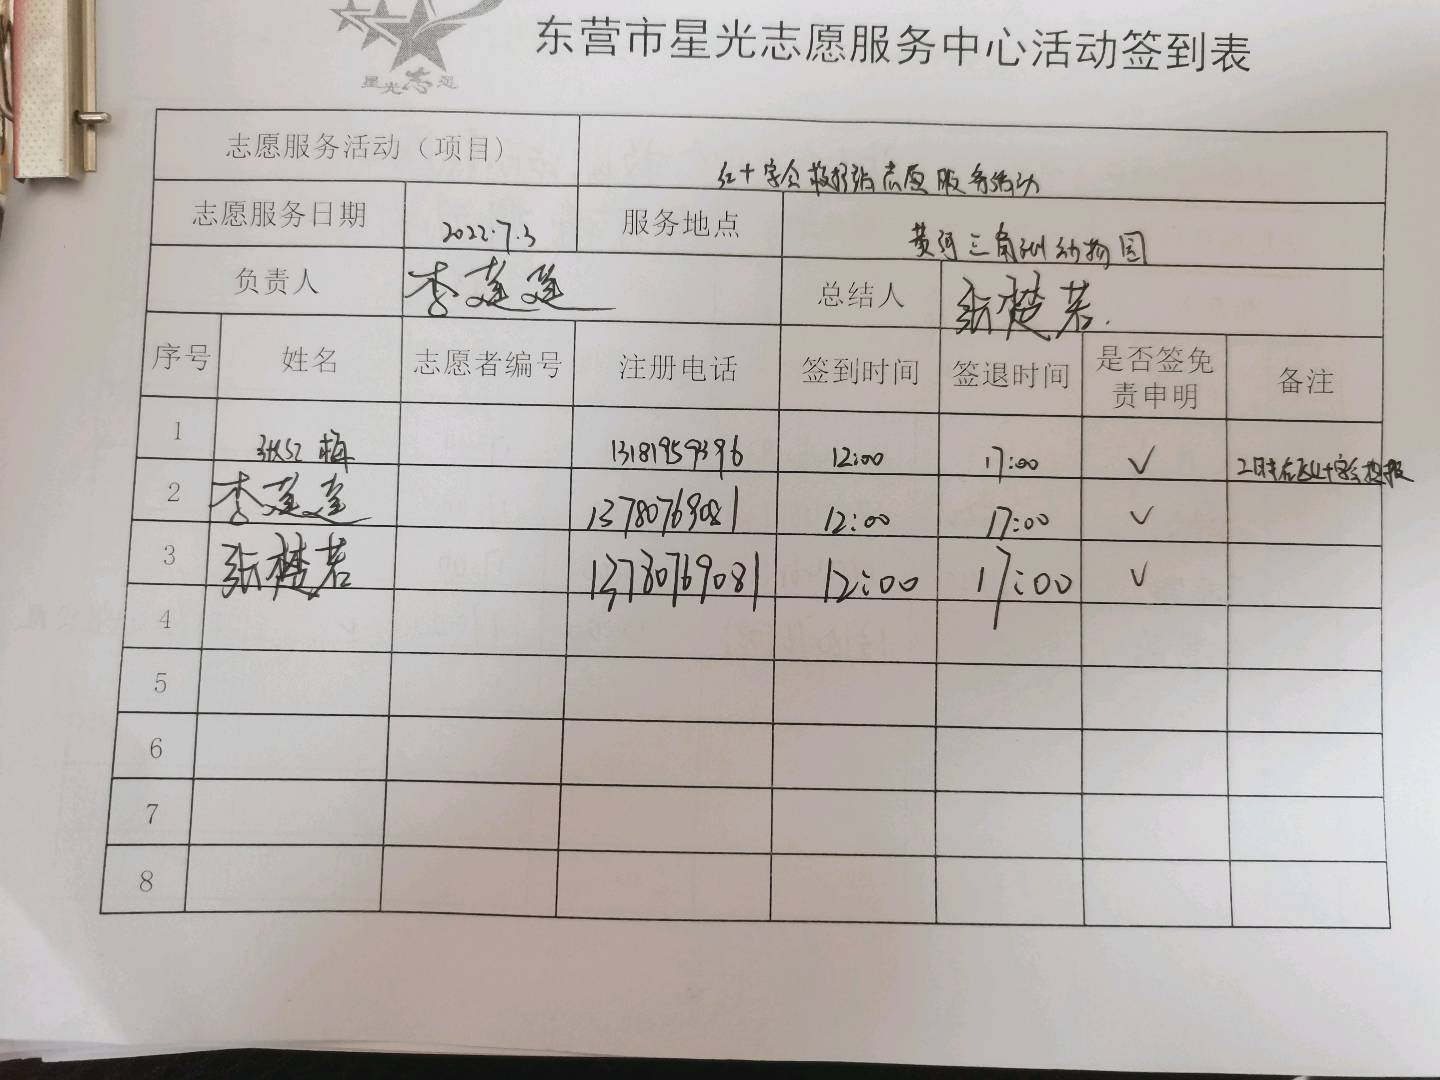 星光志愿
东营市星光志愿服务中心活动签到表
志愿服务活动（项目） 红十字会救护站志愿服务活动
志愿服务日期 2022.7.3 服务地点 黄河三角洲动物园
负责人 李莲莲 总结人 张楚若
序号 姓名 志愿者编号 注册电话 签到时间 签退时间 是否签免责申明 备注
1 张红梅 13181959396 12:00 17:00 ✓
2 李莲莲 13780769081 12:00 17:00 ✓
3 张楚若 13780769081 12:00 17:00 ✓
4
5
6
7
8